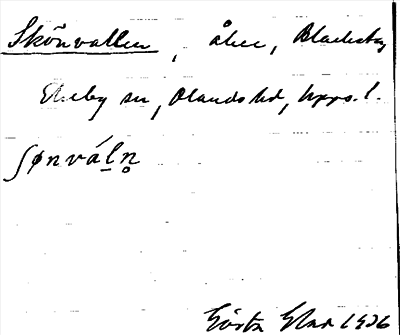 Skönvallen, åker, Blacksta,
Ekeby sn, Olands hd, Upps. l.
ʃønvál̲n̥
Gösta 1936